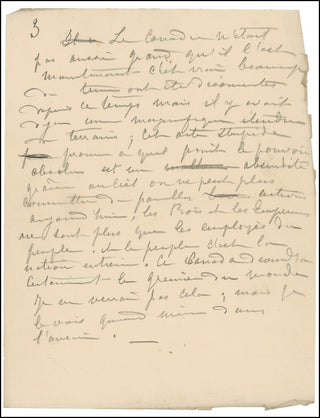 3 Le Canada n'était
pas aussi grand qu'il l'est
maintenant c'est vrai beaucoup
de terres ont été découvertes
depuis ce temps mais il y avait
déjà une magnifique étendue
de terrains; cet acte stupide
prouve à quel point le pouvoir
absolu est une absurdité
on ne peut plus
commettre de pareilles actions
aujourd'hui, les Rois et les Empereurs
ne sont plus que les employés du
peuple. et le peuple c'est la
nation entière. Ce Canada
certainement le grenier du monde
je ne verrai pas cela; mais je
le vois quand même dans
l'avenir. —